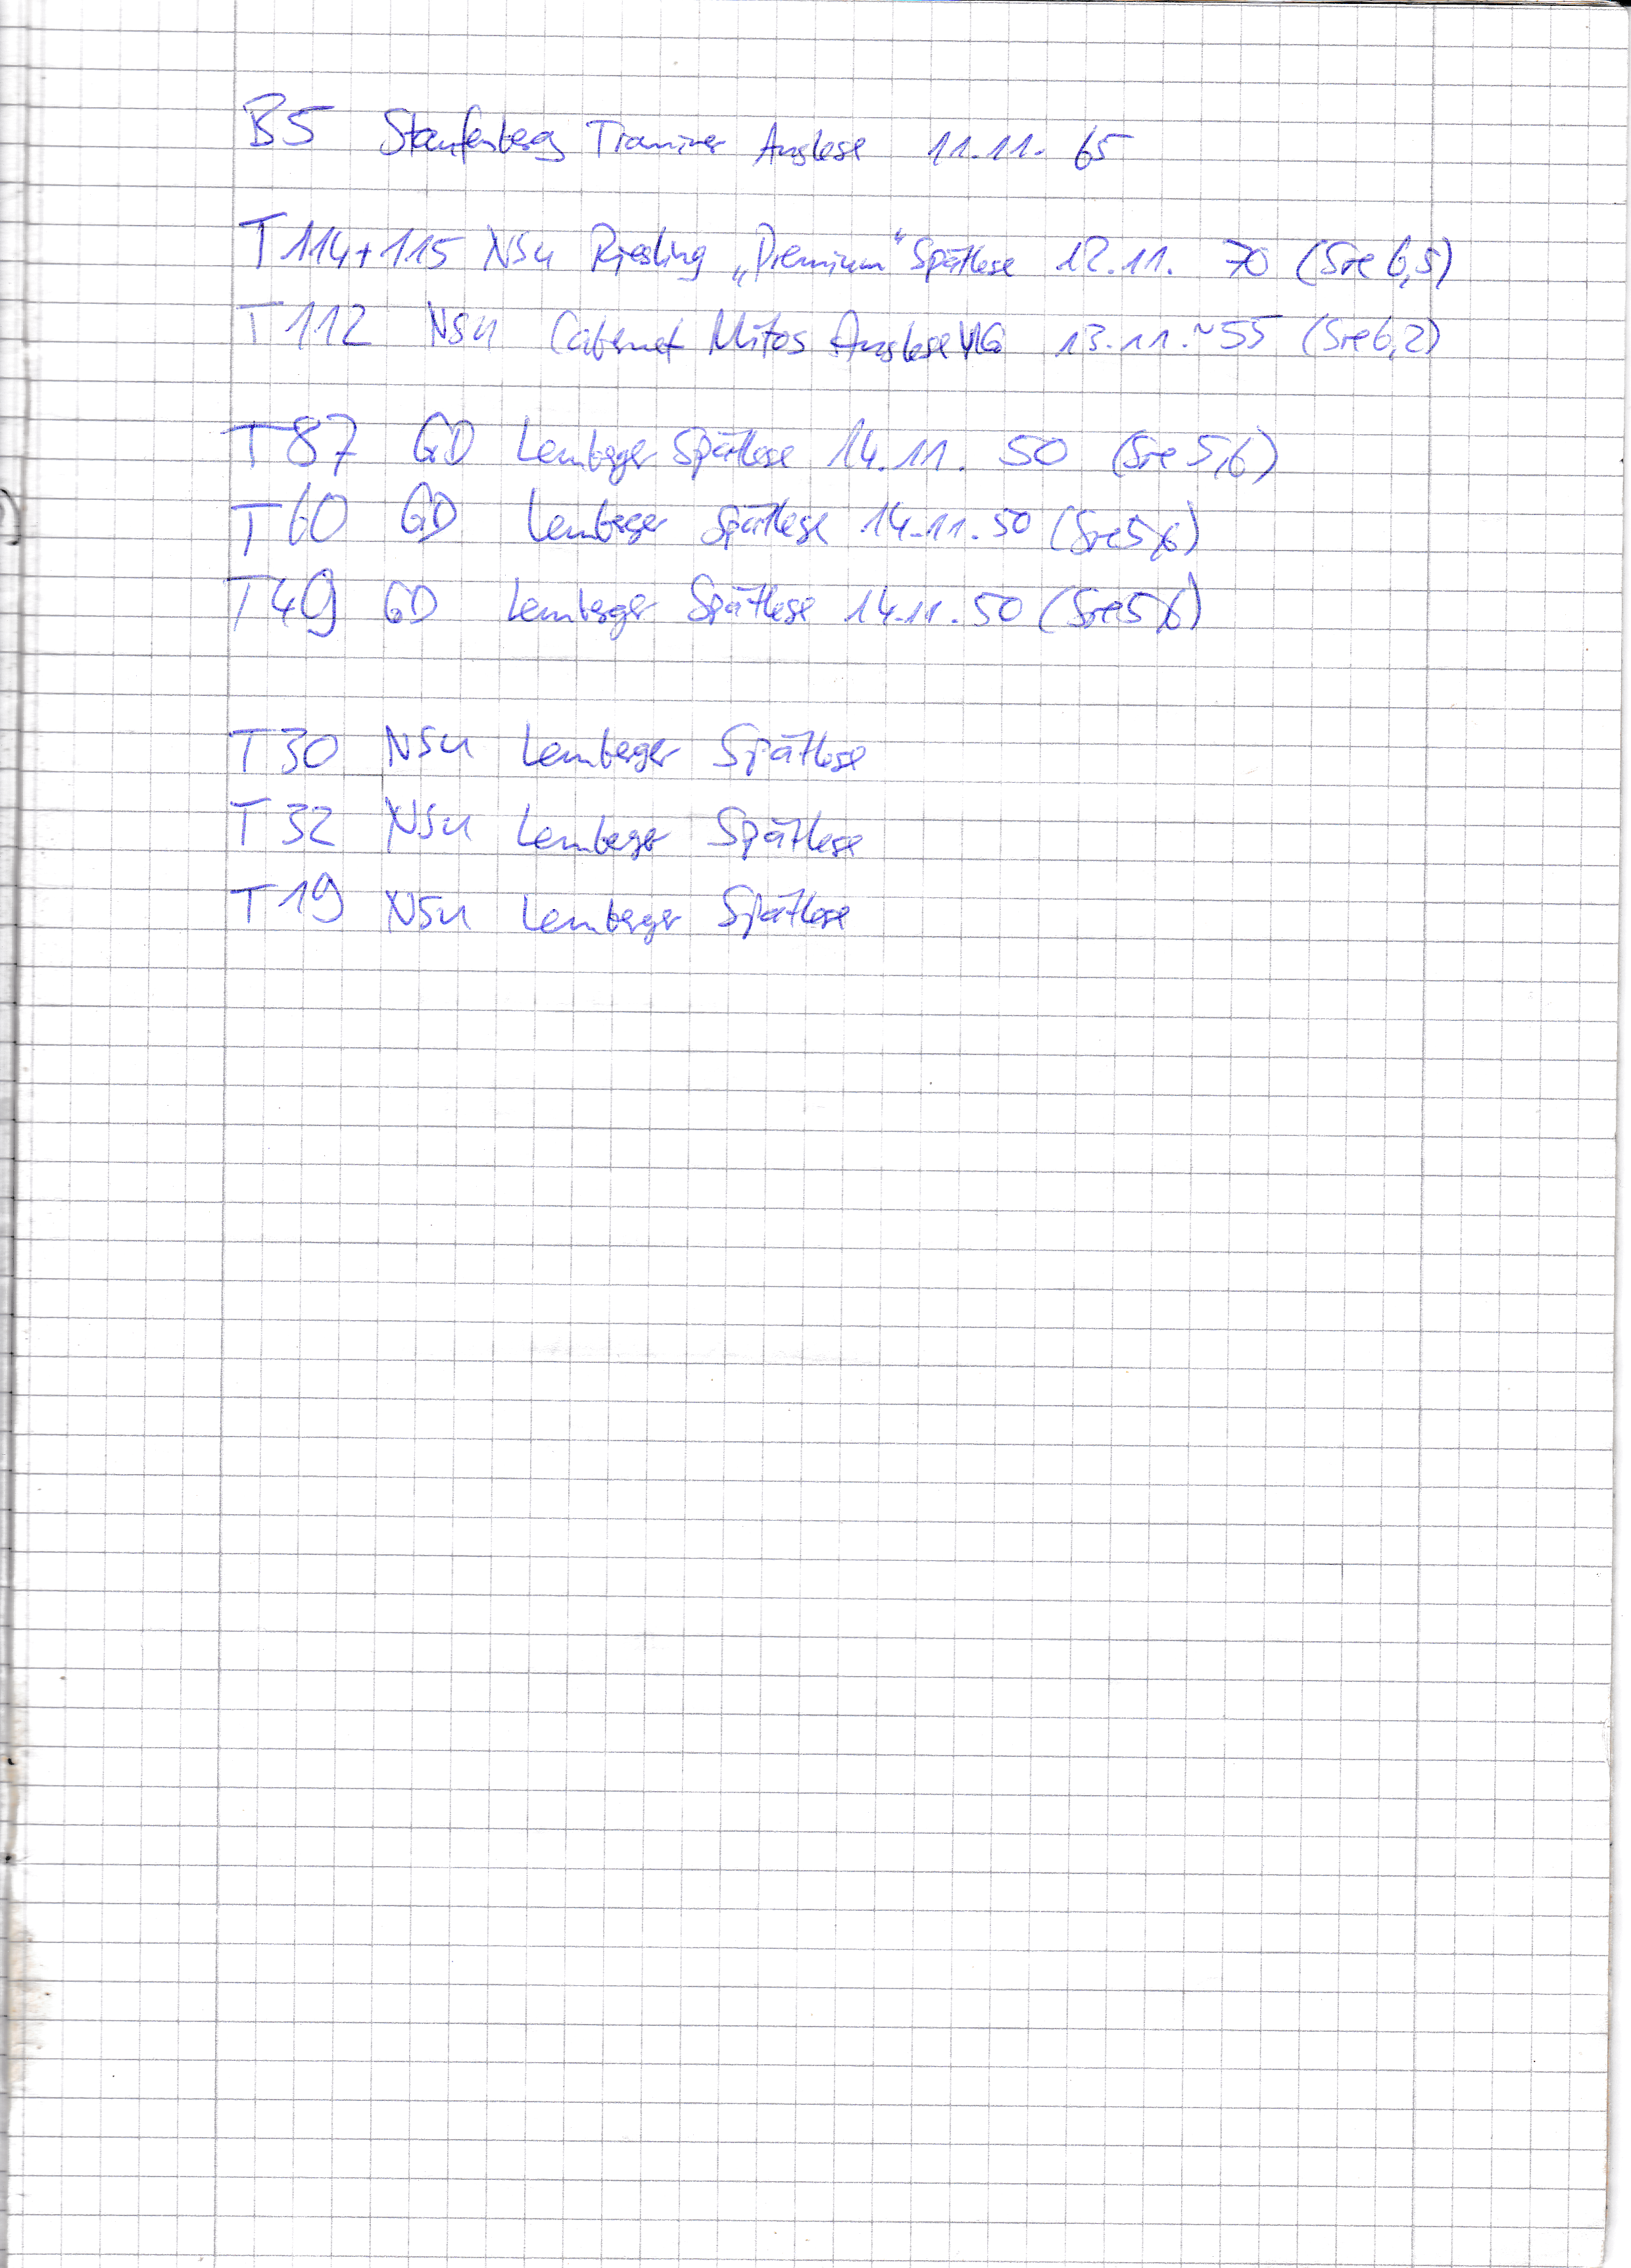 B5 Staufenberg Traminer Auslese 11.11. 65
T114+115 NSU Riesling „Premium“ Spätlese 12.11. 70 (Sre 6,5)
T112 NSU Cabernet Mitos Auslese 13.11. ~55 (Sre 6,2)
T87 GD Lemberger Spätlese 14.11. 50 (Sre 5,6)
T60 GD Lemberger Spätlese 14.11. 50 (Sre 5,6)
T49 GD Lemberger Spätlese 14.11. 50 (Sre 5,6)
T30 NSU Lemberger Spätlese
T32 NSU Lemberger Spätlese
T19 NSU Lemberger Spätlese